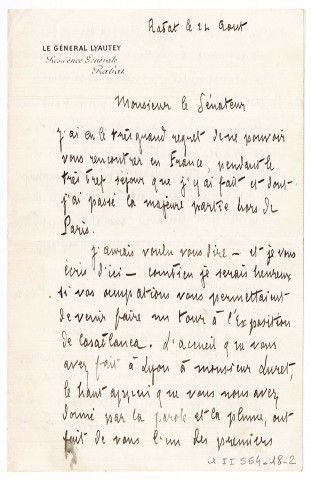 Rabat le 24 Aout
LE GÉNÉRAL LYAUTEY
Résidence Générale
Rabat
Monsieur le Sénateur
j'ai eu le très grand regret de ne pouvoir
vous rencontrer en France, pendant le
très bref séjour que j'y ai fait et dont
j'ai passé la majeure partie hors de
Paris.
j'aurais voulu vous dire – et je vous
écris d'ici – combien je serais heureux
si vos occupations vous permettaient
de venir faire un tour à l'Exposition
de Casablanca. L'accueil que vous
avez fait à Lyon à monsieur Luret,
le haut appui que vous nous avez
donné par la parole et la plume, ont
fait de vous l'un des premiers
1 II 564-18-2